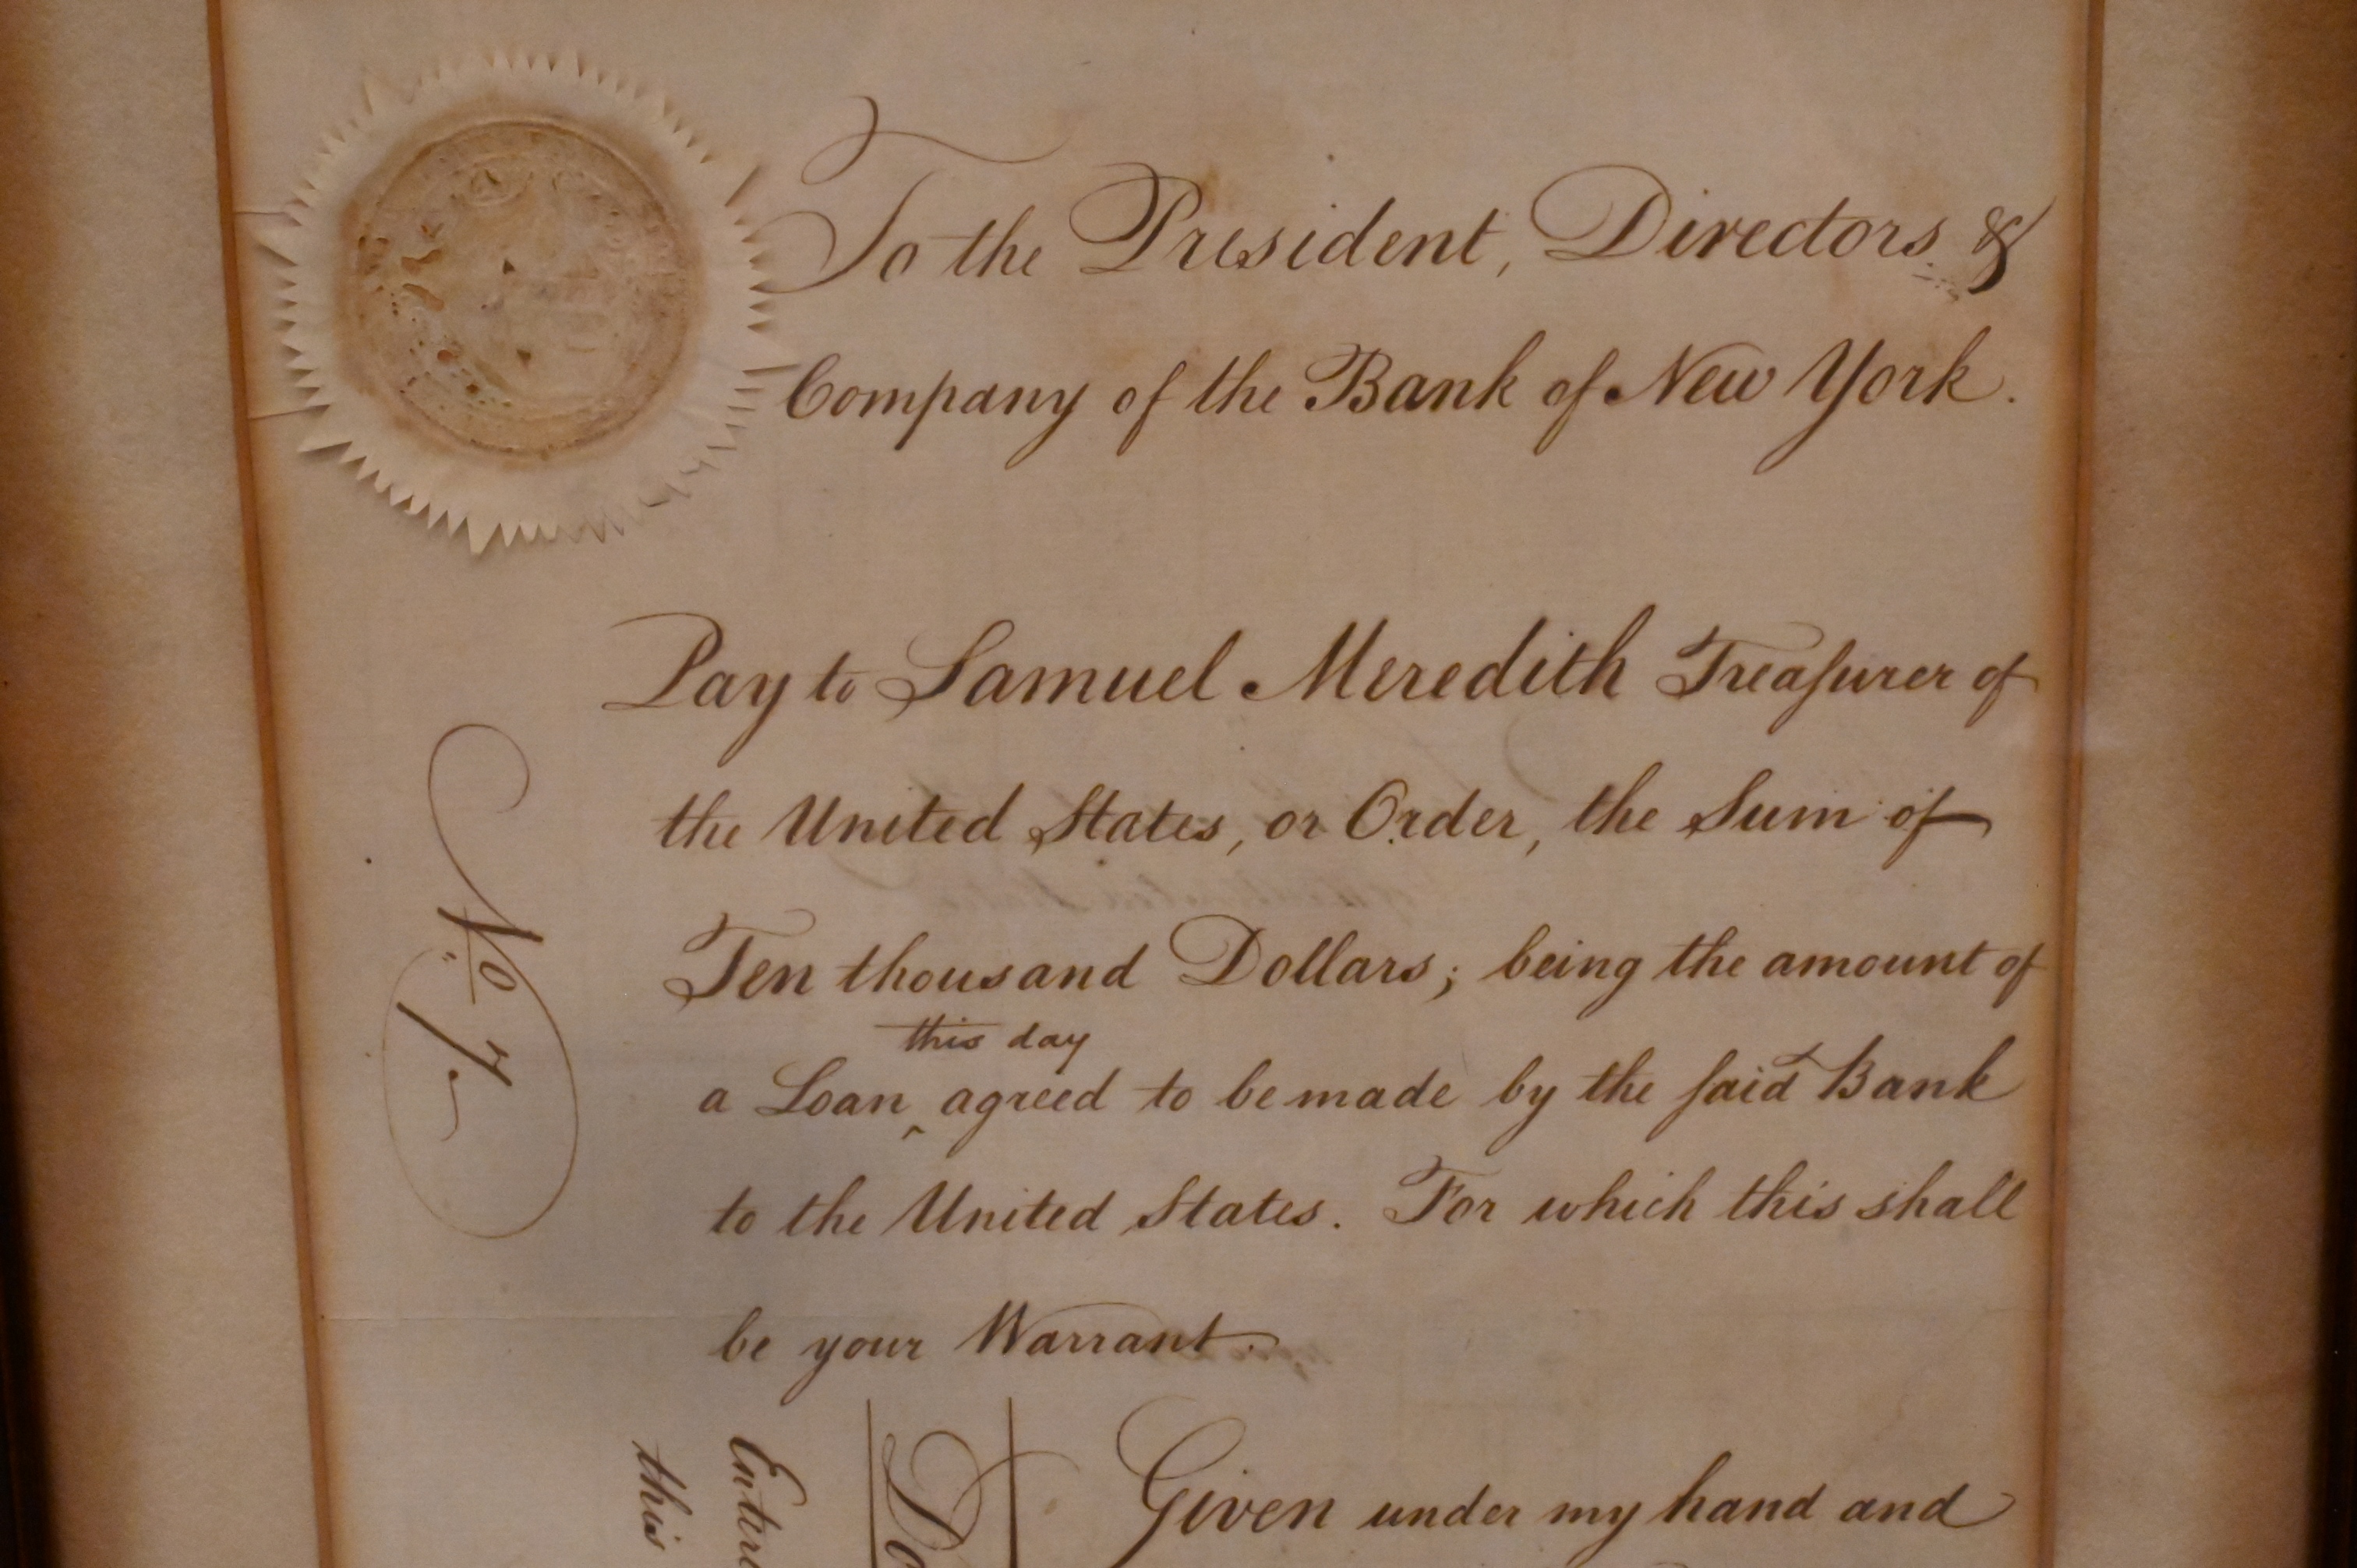 To the President, Directors &
Company of the Bank of New York.
Pay to Samuel Meredith Treaſurer of
the United States, or Order, the Sum of
Ten thousand Dollars; being the amount of
this day
a Loan ‸ agreed to be made by the ſaid Bank
to the United States. For which this shall
be your Warrant.
No 7
Given under my hand and
this